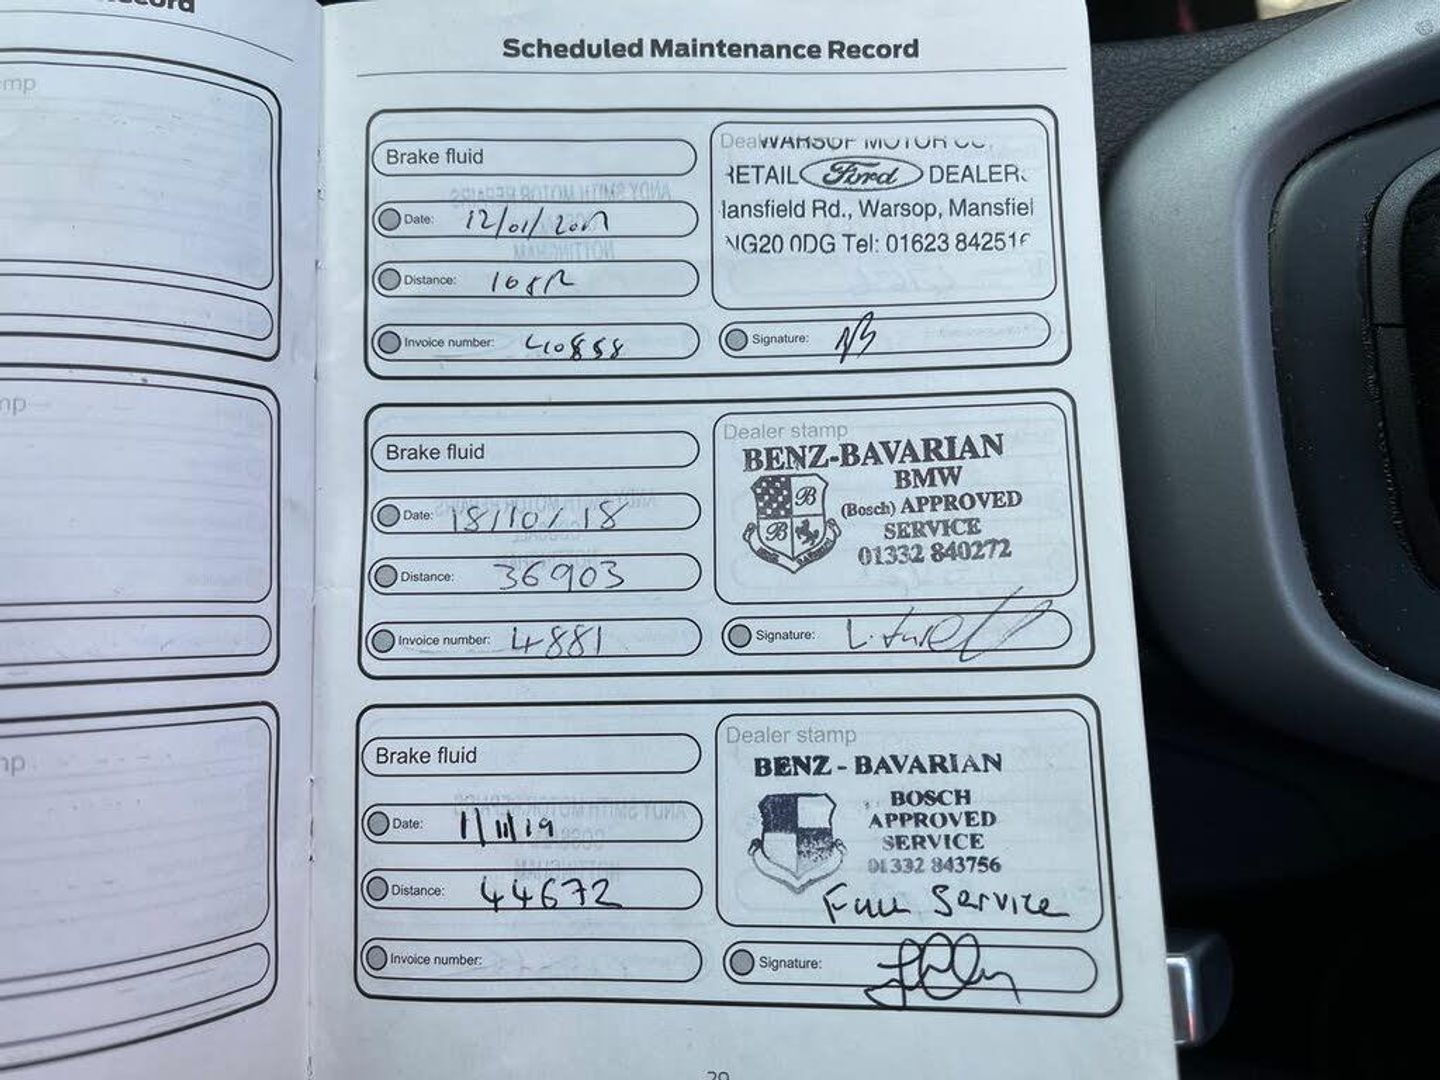 Scheduled Maintenance Record
Brake fluid
Date: 12/01/2017
Distance:
Invoice number: 40858
WARSOP MOTOR CO.
RETAIL Ford DEALER
Mansfield Rd., Warsop, Mansfiel
NG20 0DG Tel: 01623 842516
Signature:
Brake fluid
Date: 18/10/18
Distance: 36903
Invoice number: 4881
Dealer stamp
BENZ-BAVARIAN
BMW
(Bosch) APPROVED
SERVICE
01332 840272
Signature:
Brake fluid
Date: 1/11/19
Distance: 44672
Invoice number:
Dealer stamp
BENZ - BAVARIAN
BOSCH
APPROVED
SERVICE
01332 843756
Full Service
Signature: